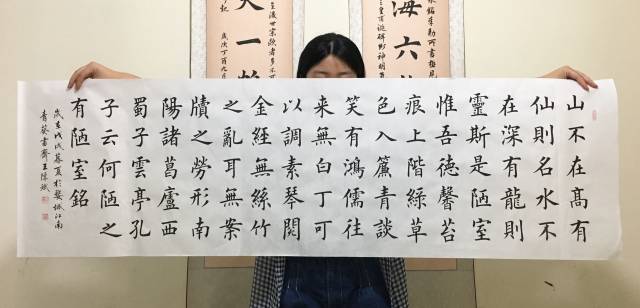 山不在高有
仙則名水不
在深有龍則
靈斯是陋室
惟吾德馨苔
痕上階綠草
色入簾青談
笑有鴻儒往
来無白丁可
以調素琴閱
金經無絲竹
之亂耳無案
牘之勞形南
陽諸葛廬西
蜀子雲亭孔
子云何陋之
有陋室銘
歲在戊戌暮夏於婺城江南
青葵書齋王陳斌
海六
天一